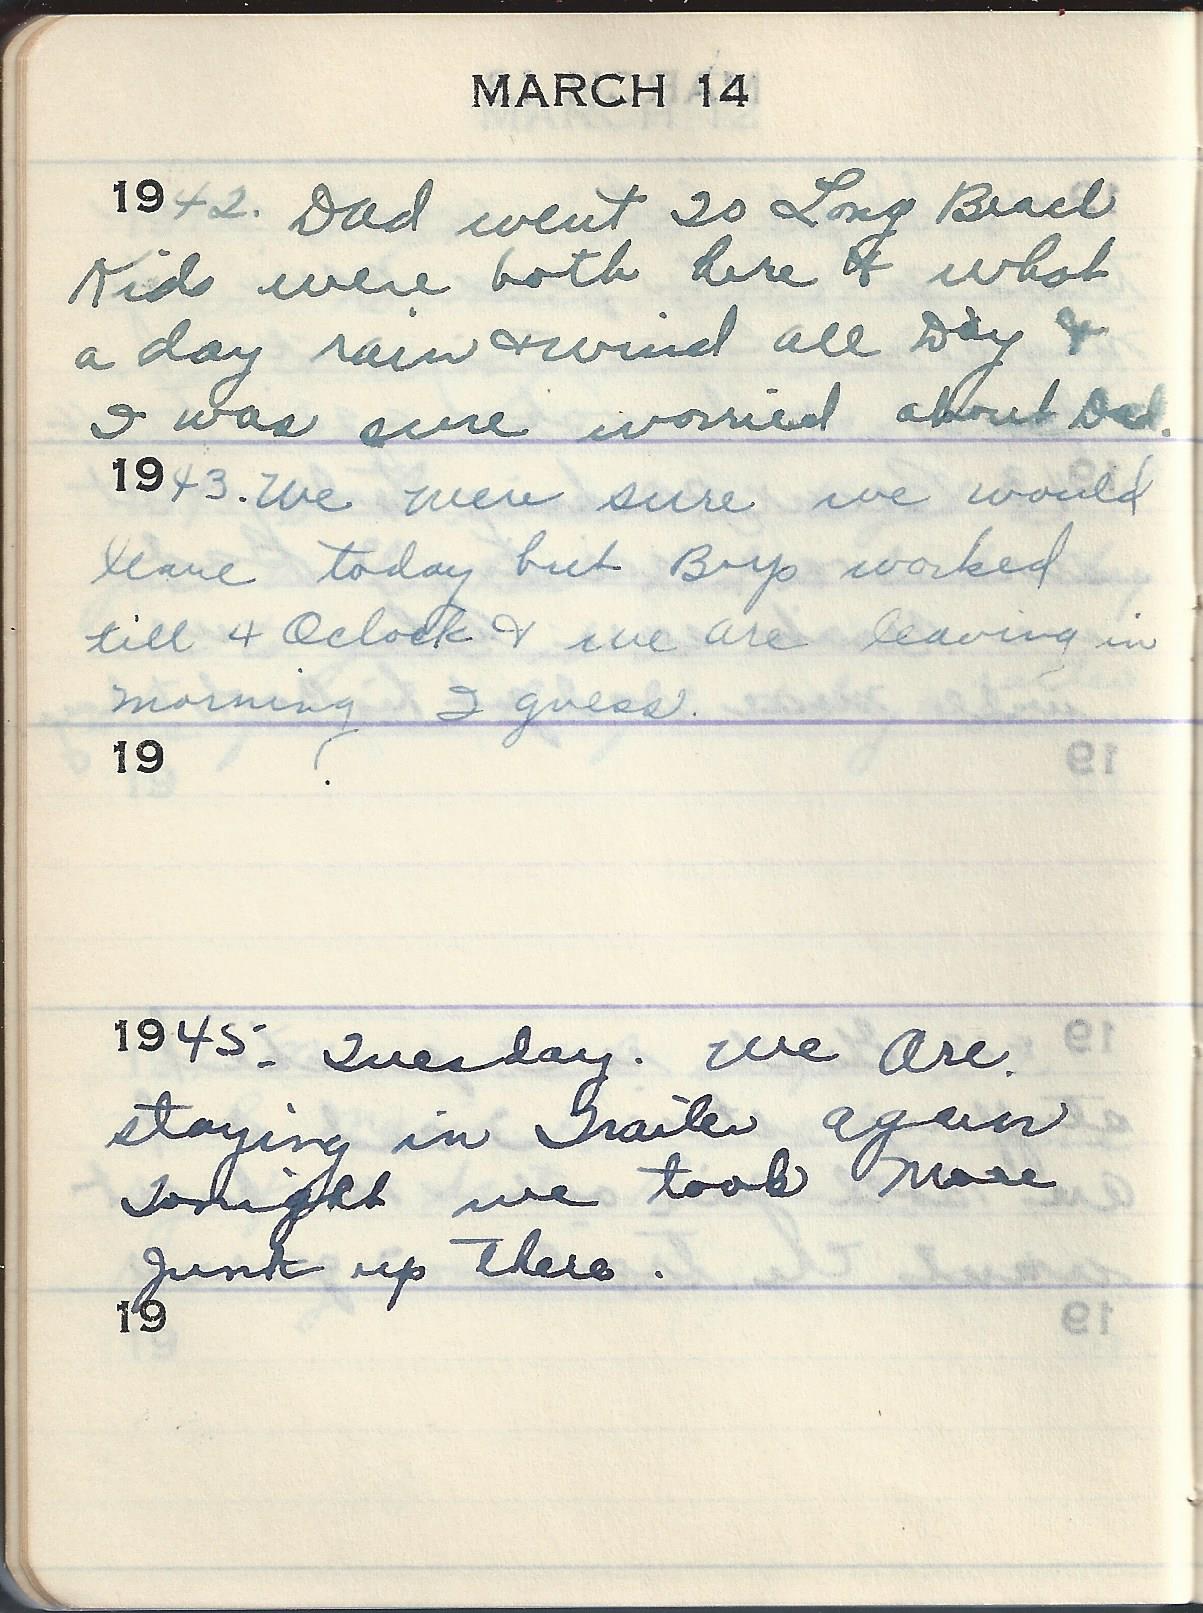 MARCH 14
1942. Dad went to Long Beach
Kids were both here & what
a day rain & wind all Day &
I was sure worried about Dad.
1943. We were sure we would
leave today but Boys worked
till 4 Oclock & we are leaving in
morning I guess.
19
1945- Tuesday. We Are.
staying in Trailer again
Tonight we took More
junk up There.
19